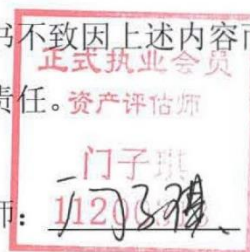 书不致因上述内容
正式执业会员
责任。资产评估师
门子琪
师：11200